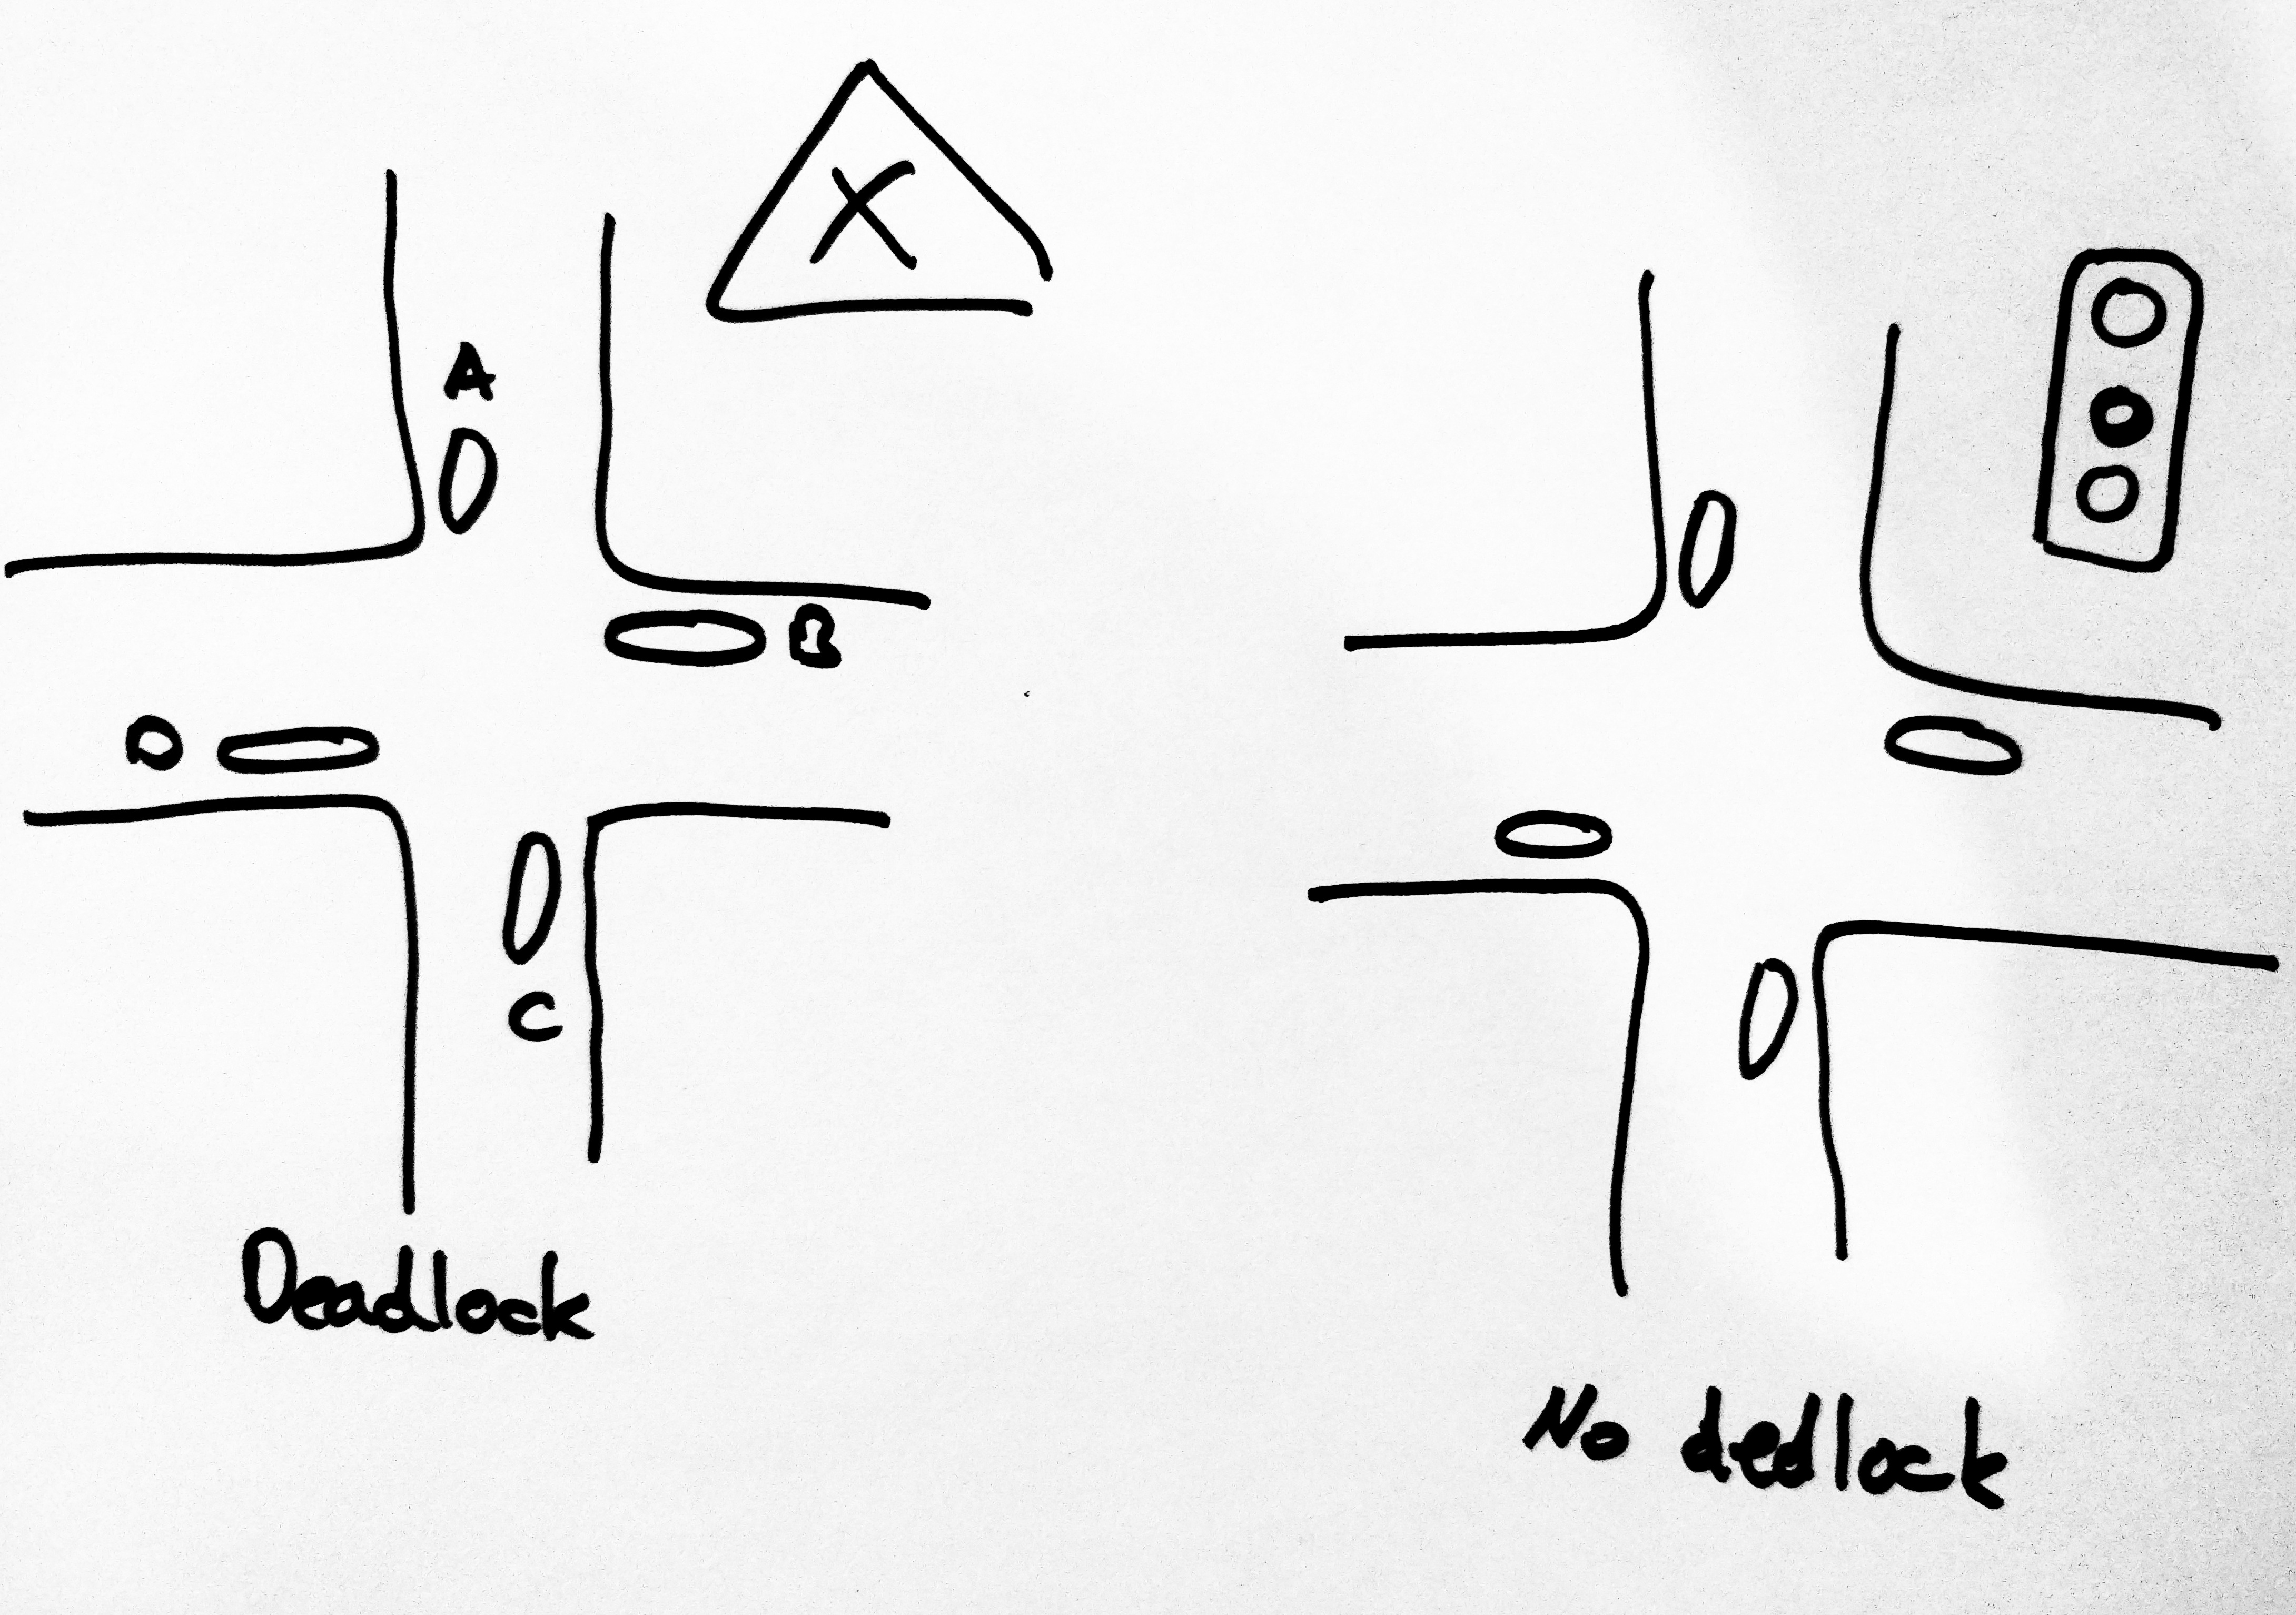 X
A
B
D
C
Deadlock
No dedlock